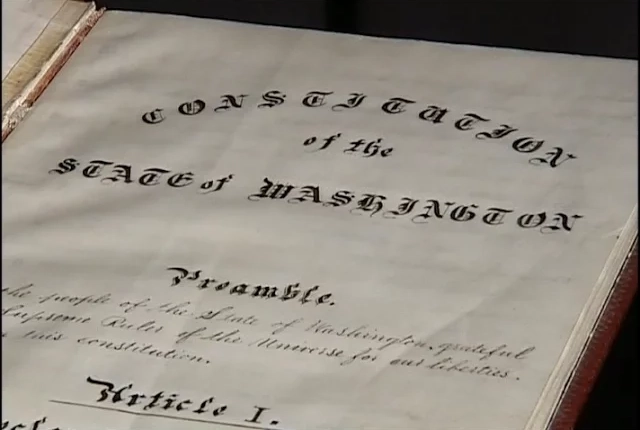 CONSTITUTION
of the
STATE of WASHINGTON
Preamble.
the people of the State of Washington, grateful
Supreme Ruler of the Universe for our liberties,
this constitution.
Article I.